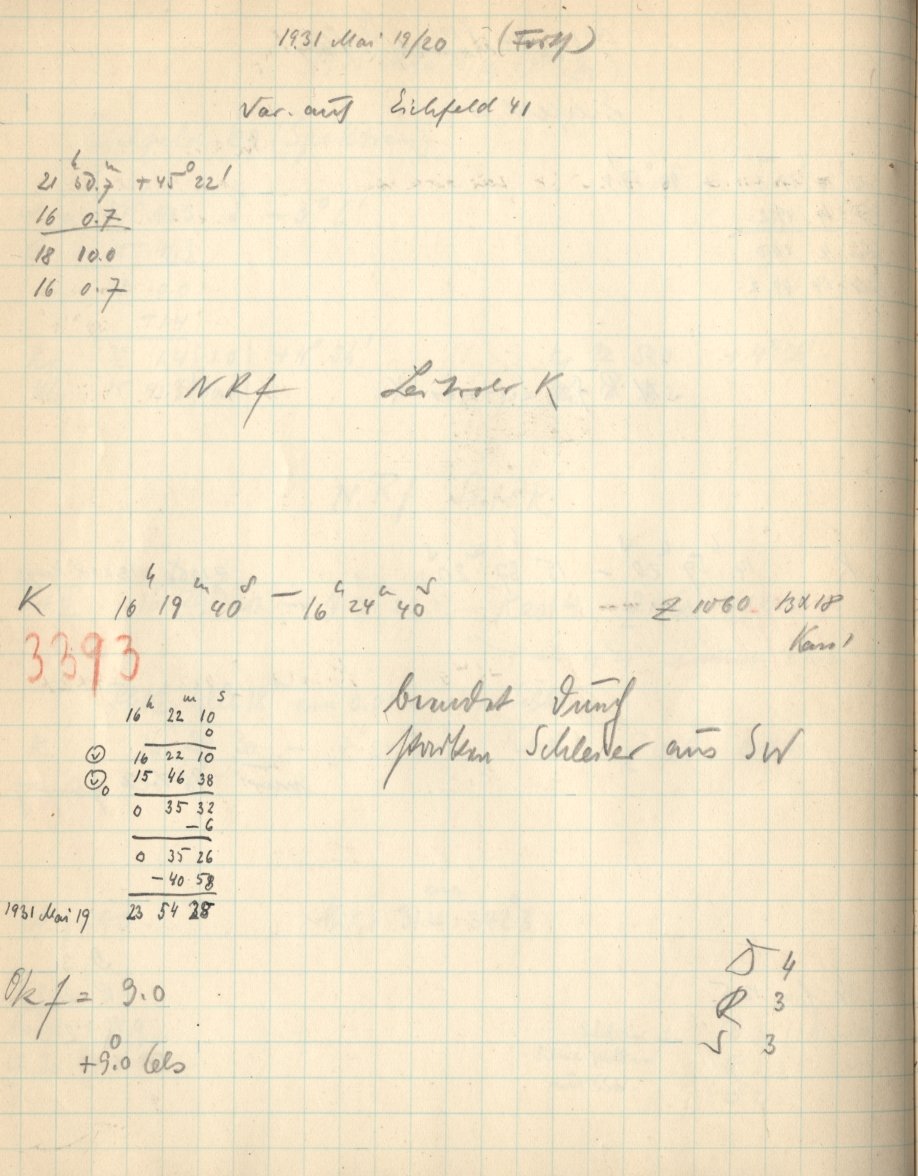 1931 Mai 19/20 (Forts)
Var. auf Eichfeld 41
21ʰ 50.7ᵐ +45° 22'
16 0.7
18 10.0
16 0.7
NRf Leitrohr K
K 16ʰ 19ᵐ 40ˢ — 16ʰ 24ᵐ 40ˢ Z 1060 13x18
3393
16ʰ 22ᵐ 10ˢ
0
16 22 10
15 46 38
0 35 32
-6
0 35 26
-40 58
1931 Mai 19 23 54 28
beendet durch
starken Schleier aus SW
Okf = 9.0
+9°.0 Cels
D 4
R 3
S 3